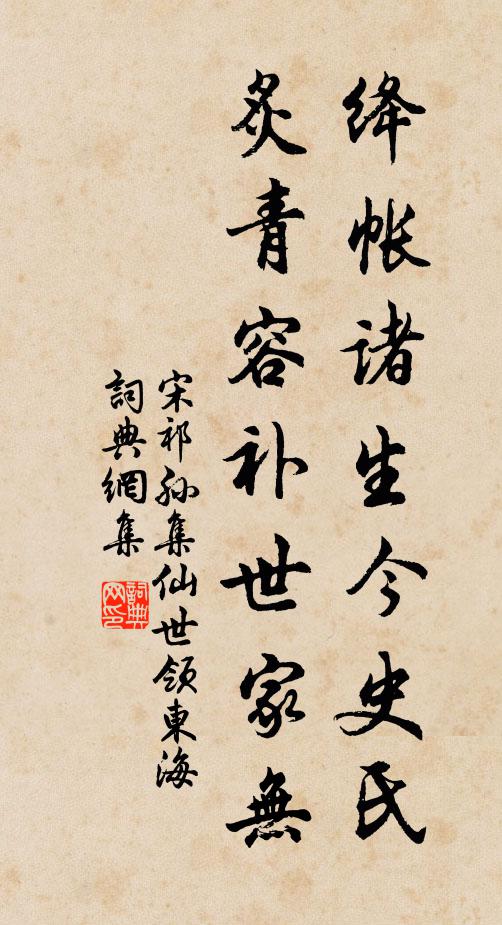 绛帐诸生今史氏
炙青容补世家無
宋祁孙集仙世领東海
詞典網集
詞典
网印